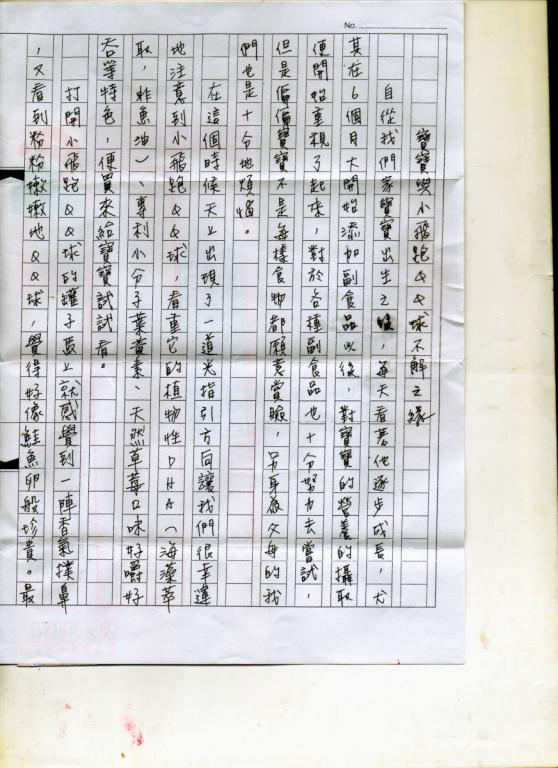 No.
寶寶與小飛跑QQ球不解之緣
自從我們家寶寶出生之後，每天看著他逐步成長，尤
其在6個月大開始添加副食品以後，對寶寶的營養的攝取
便開始重視了起來，對於各種副食品也十分努力去嘗試，
但是偏偏寶寶不是每樣食物都願意賞臉，另身為父母的我
們也是十分地煩惱。
在這個時候天上出現了一道光指引方向讓我們很幸運
地注意到小飛跑QQ球，看重它的植物性DHA（海藻萃
取，非魚油）、專利小分子葉黃素、天然草莓口味好嚼好
吞等特色，便買來給寶寶試試看。
打開小飛跑QQ球的罐子馬上就感覺到一陣香氣撲鼻
，又看到粉粉嫩嫩地QQ球，覺得好像鮭魚卵般珍貴。最